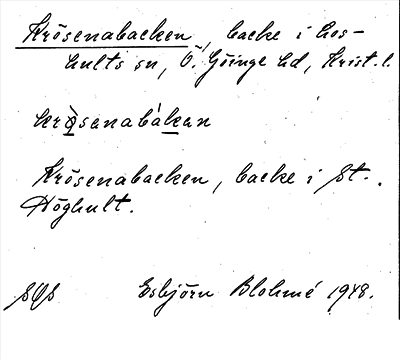 Krösenabacken, backe i Los-
hults sn, Ö. Göinge hd, Krist. l.
krösenabákan
Krösenabacken, backe i St.
Höghult.
Esbjörn Blohmé 1948.